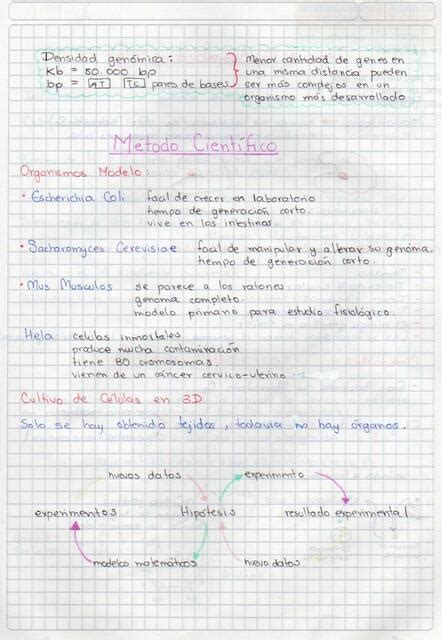 Densidad genómica:
Kb = 50.000 bp
bp = AT TC pares de bases
Menor cantidad de genes en
una misma distancia pueden
ser más complejos en un
organismo más desarrollado
Método Científico
Organismos Modelo:
• Escherichia Coli facil de crecer en laboratorio
tiempo de generación corto.
vive en los intestinas.
• Sacharomyces Cerevisiae facil de manipular y alterar su genóma.
tiempo de generación corto.
• Mus Musculos se parece a los ratones
genoma completo.
modelo primario para estudio fisiológico.
Hela celulas inmortales
produce mucha contaminación
tiene 80 cromosomas.
vienen de un cáncer cervico-uterino
Cultivo de Células en 3D
Solo se hay obtenido tejidos, todavia no hay órganos.
nuevos datos experimento
experimentos Hipótesis resultado experimental
modelos matemáticos nuevo datos